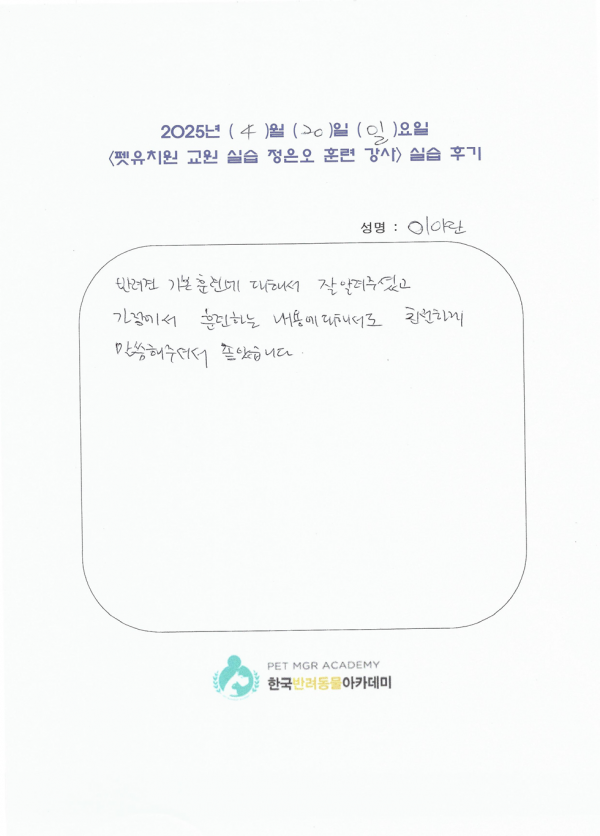 2025년 ( 4 )월 ( 20 )일 ( 일 )요일
<펫유치원 교원 실습 정은오 훈련 강사> 실습 후기
성명 : 이아란
반려견 기본훈련에 대해서 잘알려주셨고
가정에서 훈련하는 내용에대해서도 친절하게
말씀해주셔서 좋았습니다.
PET MGR ACADEMY
한국반려동물아카데미